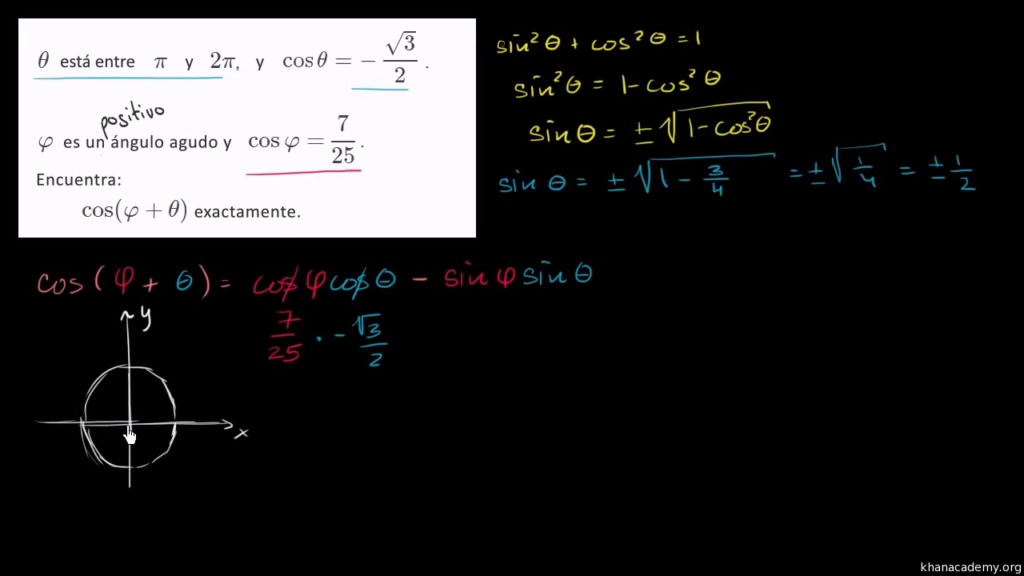 θ está entre π y 2π, y cos θ = − √3/2 .
positivo
φ es un ángulo agudo y cos φ = 7/25 .
Encuentra:
cos(φ + θ) exactamente.
sin² θ + cos² θ = 1
sin² θ = 1 - cos² θ
sin θ = ± √(1 - cos² θ)
sin θ = ± √(1 - 3/4) = ± √(1/4) = ± 1/2
cos ( φ + θ ) = cos φ cos θ - sin φ sin θ
7/25 · - √3/2
y
x
khanacademy.org